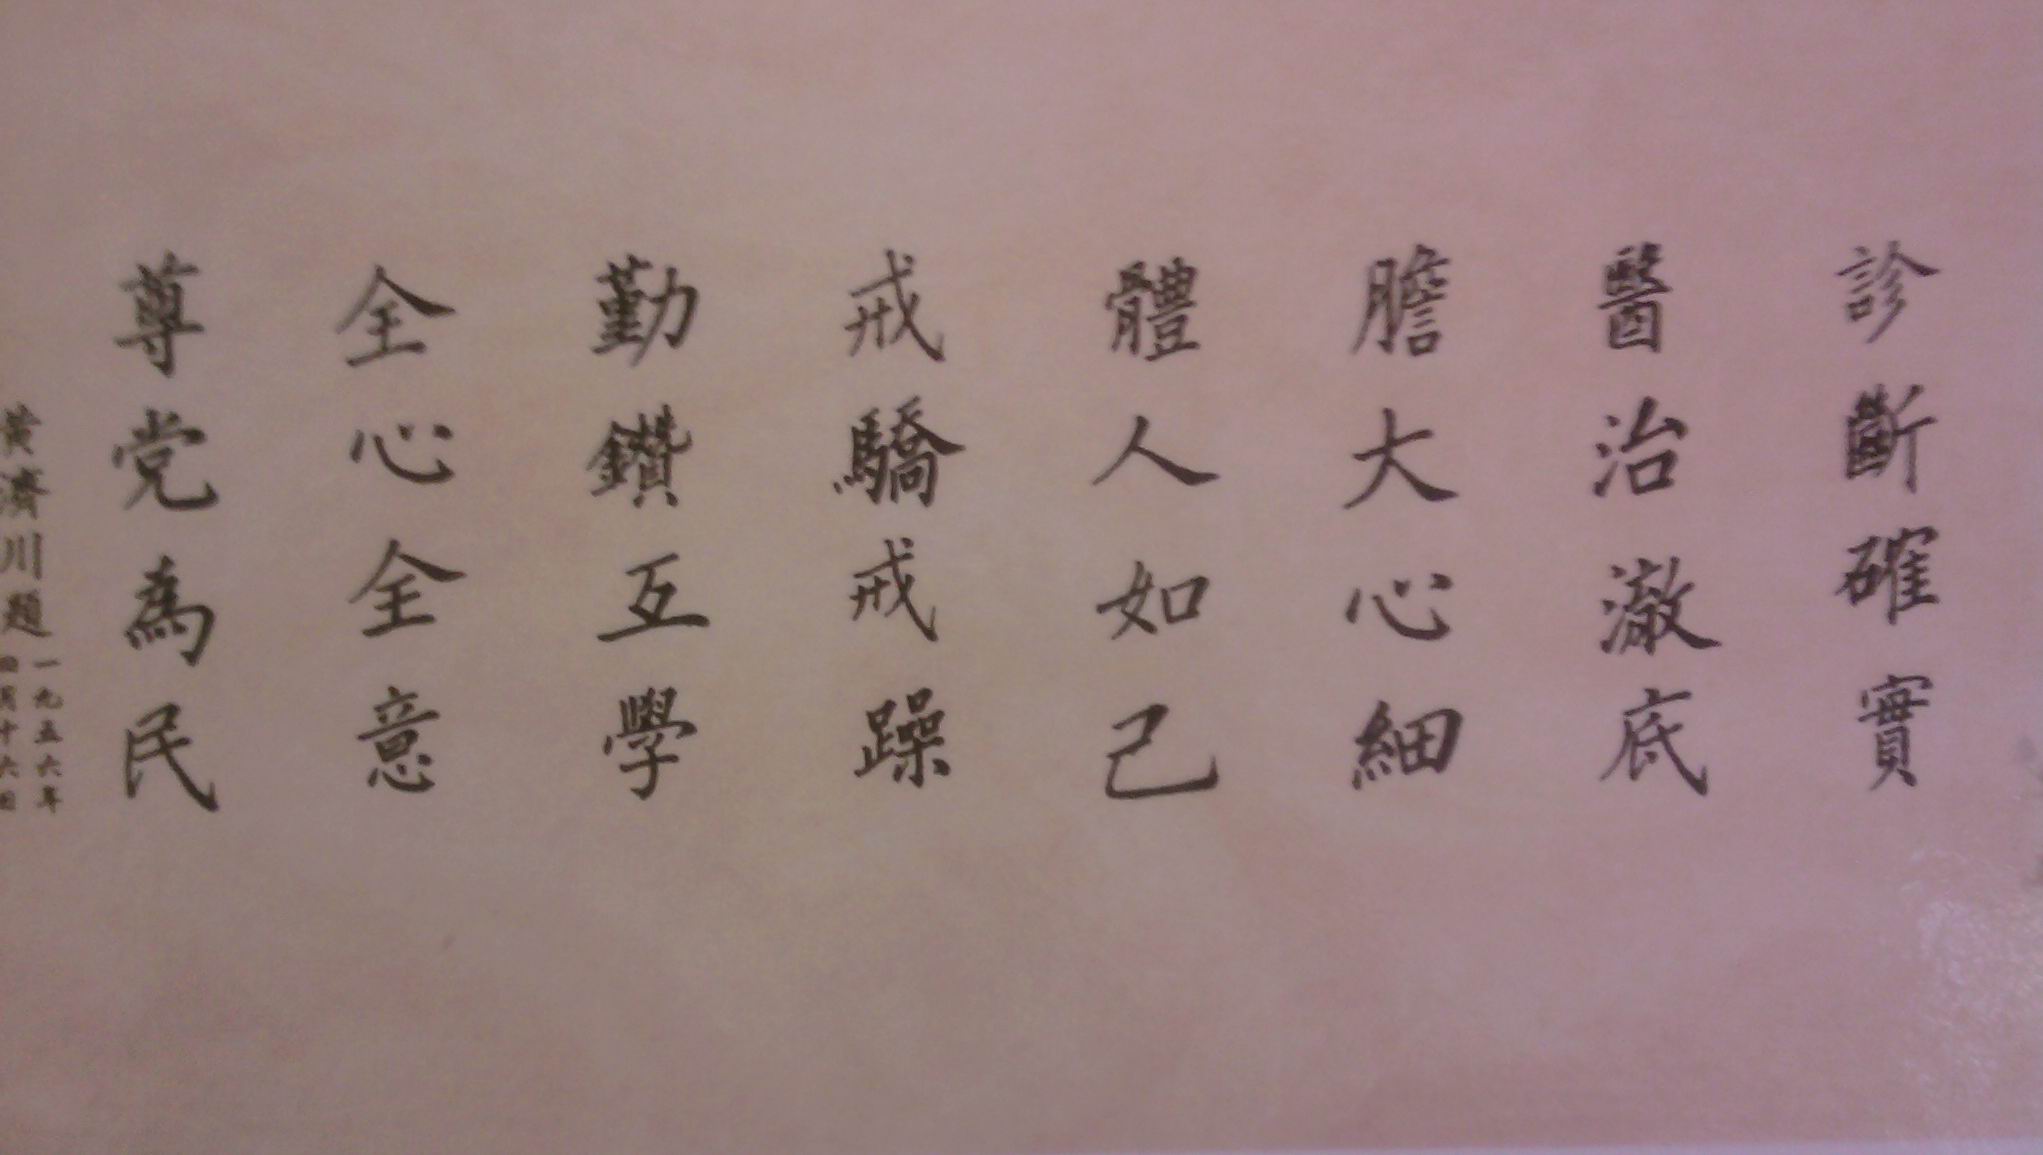 診斷確實
醫治澈底
膽大心細
體人如己
戒驕戒躁
勤鑽互學
全心全意
尊党為民
黃濟川題
一九五六年
四月十六日